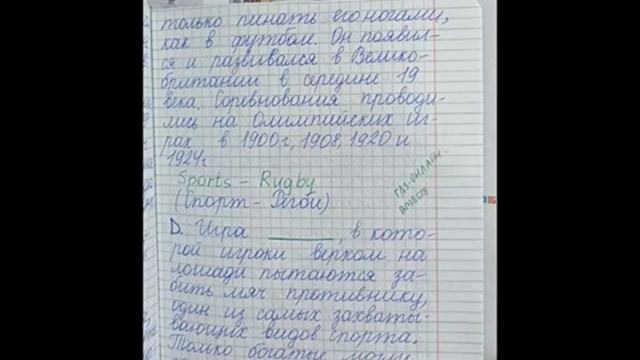 только пинать его ногами,
как в футбол. Он появил-
ся и развивался в Велико-
британии в середине 19
века. Соревнования проводи-
лись на Олимпийских иг-
рах в 1900г, 1908, 1920 и
1924г
Sports - Rugby
(Спорт - Регби)
ГДЗ-ОНЛАЙН.
D. Игра ______, в кото-
рой игроки верхом на
лошади пытаются за-
бить мяч противнику,
один из самых захваты-
вающих видов спорта.
Только богатые могли